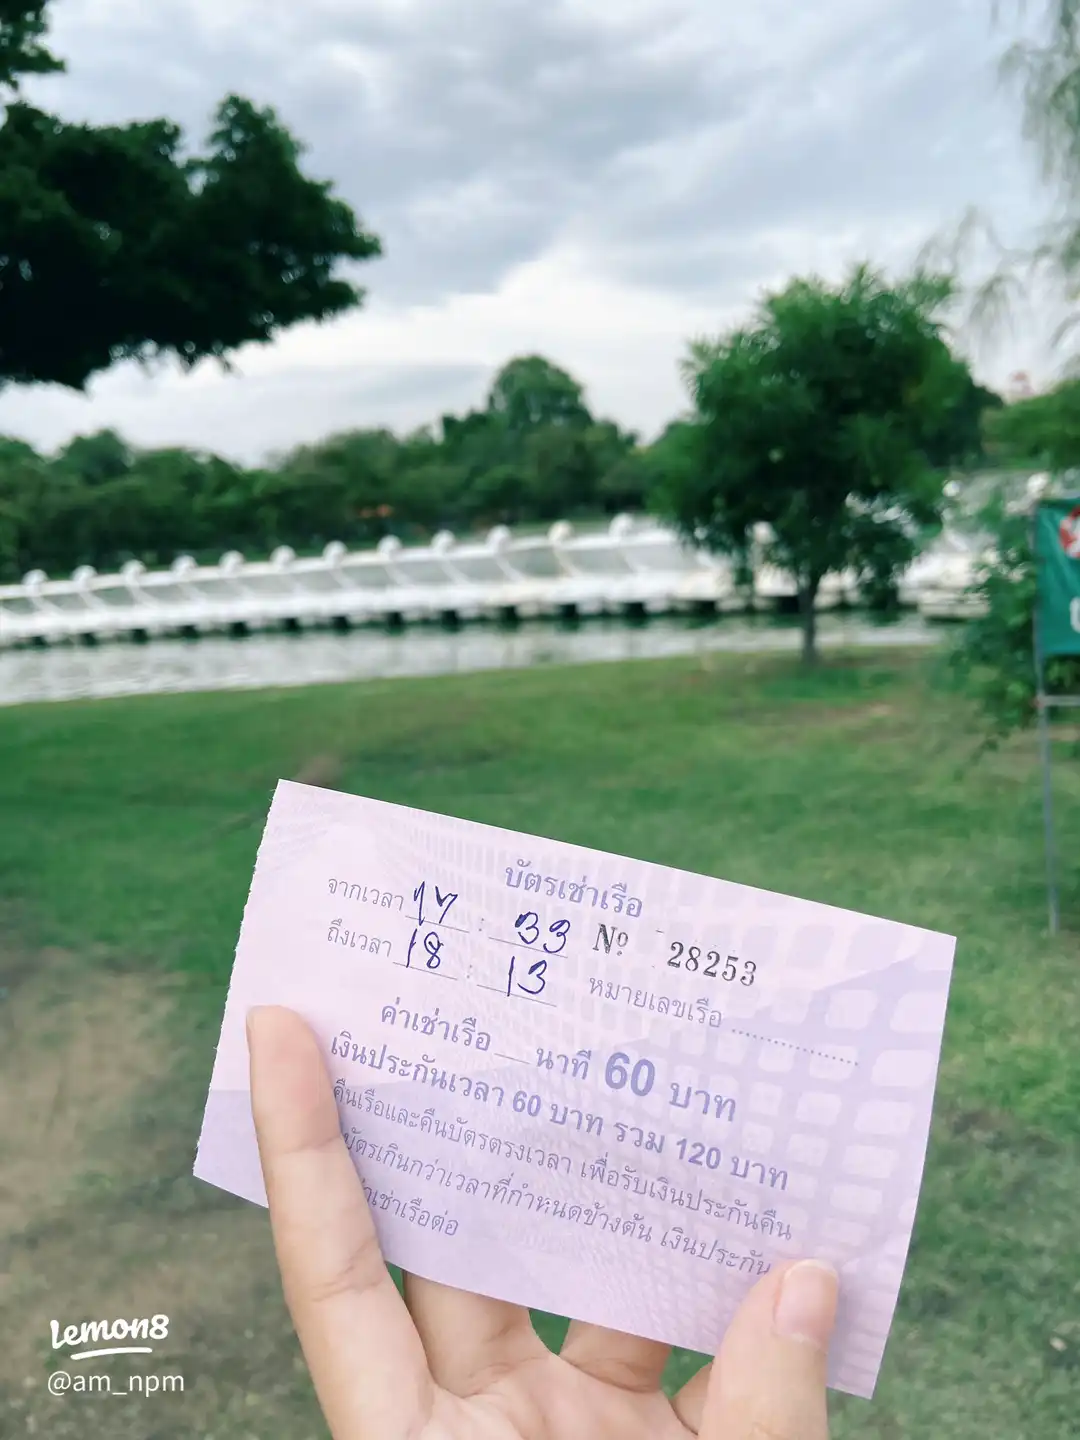 บัตรเช่าเรือ
จากเวลา 17 : 33 Nº 28253
ถึงเวลา 18 : 13 หมายเลขเรือ ..................
ค่าเช่าเรือ __ นาที 60 บาท
เงินประกันเวลา 60 บาท รวม 120 บาท
คืนเรือและคืนบัตรตรงเวลา เพื่อรับเงินประกันคืน
บัตรเกินกว่าเวลาที่กำหนดข้างต้น เงินประกัน
ค่าเช่าเรือต่อ
Lemon8
@am_npm